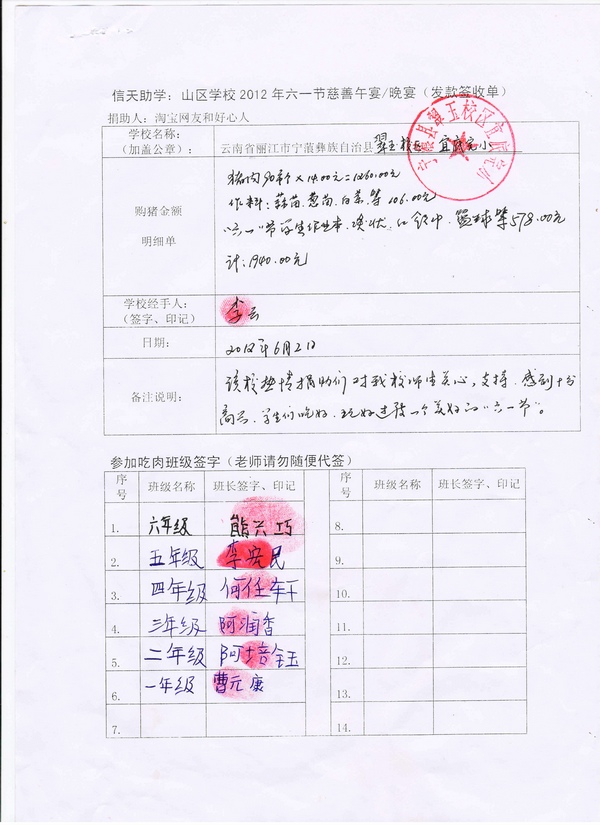 信天助学：山区学校2012年六一节慈善午宴/晚宴（发款签收单）
捐助人：淘宝网友和好心人
学校名称：
（加盖公章）：
云南省丽江市宁蒗彝族自治县翠玉校区 宜底完小
购猪金额
明细单
猪肉90市斤×14.00元=1260.00元
作料：蒜苗、葱苗、白菜、等 106.00元
"六一"节学生作业本、奖状、红领巾、篮球等578.00元
计：1940.00元
学校经手人：
（签字、印记）
李云
日期：
2012年6月2日
备注说明：
该校热情捐助们对我校师生关心，支持，感到十分
高兴、学生们吃好、玩好过了一个美好的"六一节"。
参加吃肉班级签字（老师请勿随便代签）
序号 班级名称 班长签字、印记 序号 班级名称 班长签字、印记
1. 六年级 熊兴巧 8.
2. 五年级 李安民 9.
3. 四年级 何任轩 10.
4. 三年级 阿润香 11.
5. 二年级 阿培钰 12.
6. 一年级 曹元康 13.
7. 14.